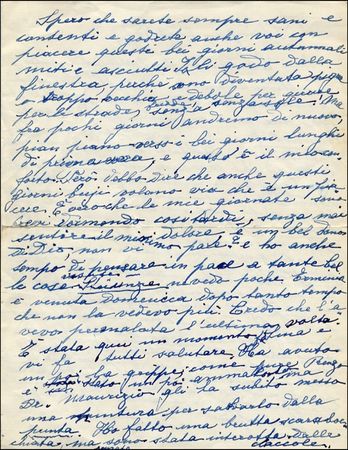 Spero che sarete sempre sani e
contenti e godrete anche voi con
piacere questi bei giorni autunnali
miti e asciutti. Li godo dalla
finestra, perché sono diventata pigra
o troppo vecchia, debole per girare
per le strade, senza sole! Ma
fra pochi giorni andremo di nuovo,
pian piano verso i bei giorni lunghi
di primavera, e questo è il mio
Però debbo dire che anche questi
giorni bui volano via che è un pia-
cere. È vero che le mie giornate
così tardi, senza mai
sentire il mio dolore, è un bel dono
di Dio, non vi pare? E ho anche
tempo di pensare in pace a tante bel
le cose vedo poche. Erminia
è venuta domenica dopo tanto tempo
che non la vedevo più. Credo che l'a-
vevo l'ultima volta.
È stata qui un momento Nina e
vi fa tutti salutare. Ha avuto
un po' la grippe, come pure
è stato un po' ammalato ma
Dr. Maurizio gli ha subito messo
una puntura per salvarlo dalla
punta. Ho fatto una brutta scaraboc-
chiata, ma sono stata interrotta dalle